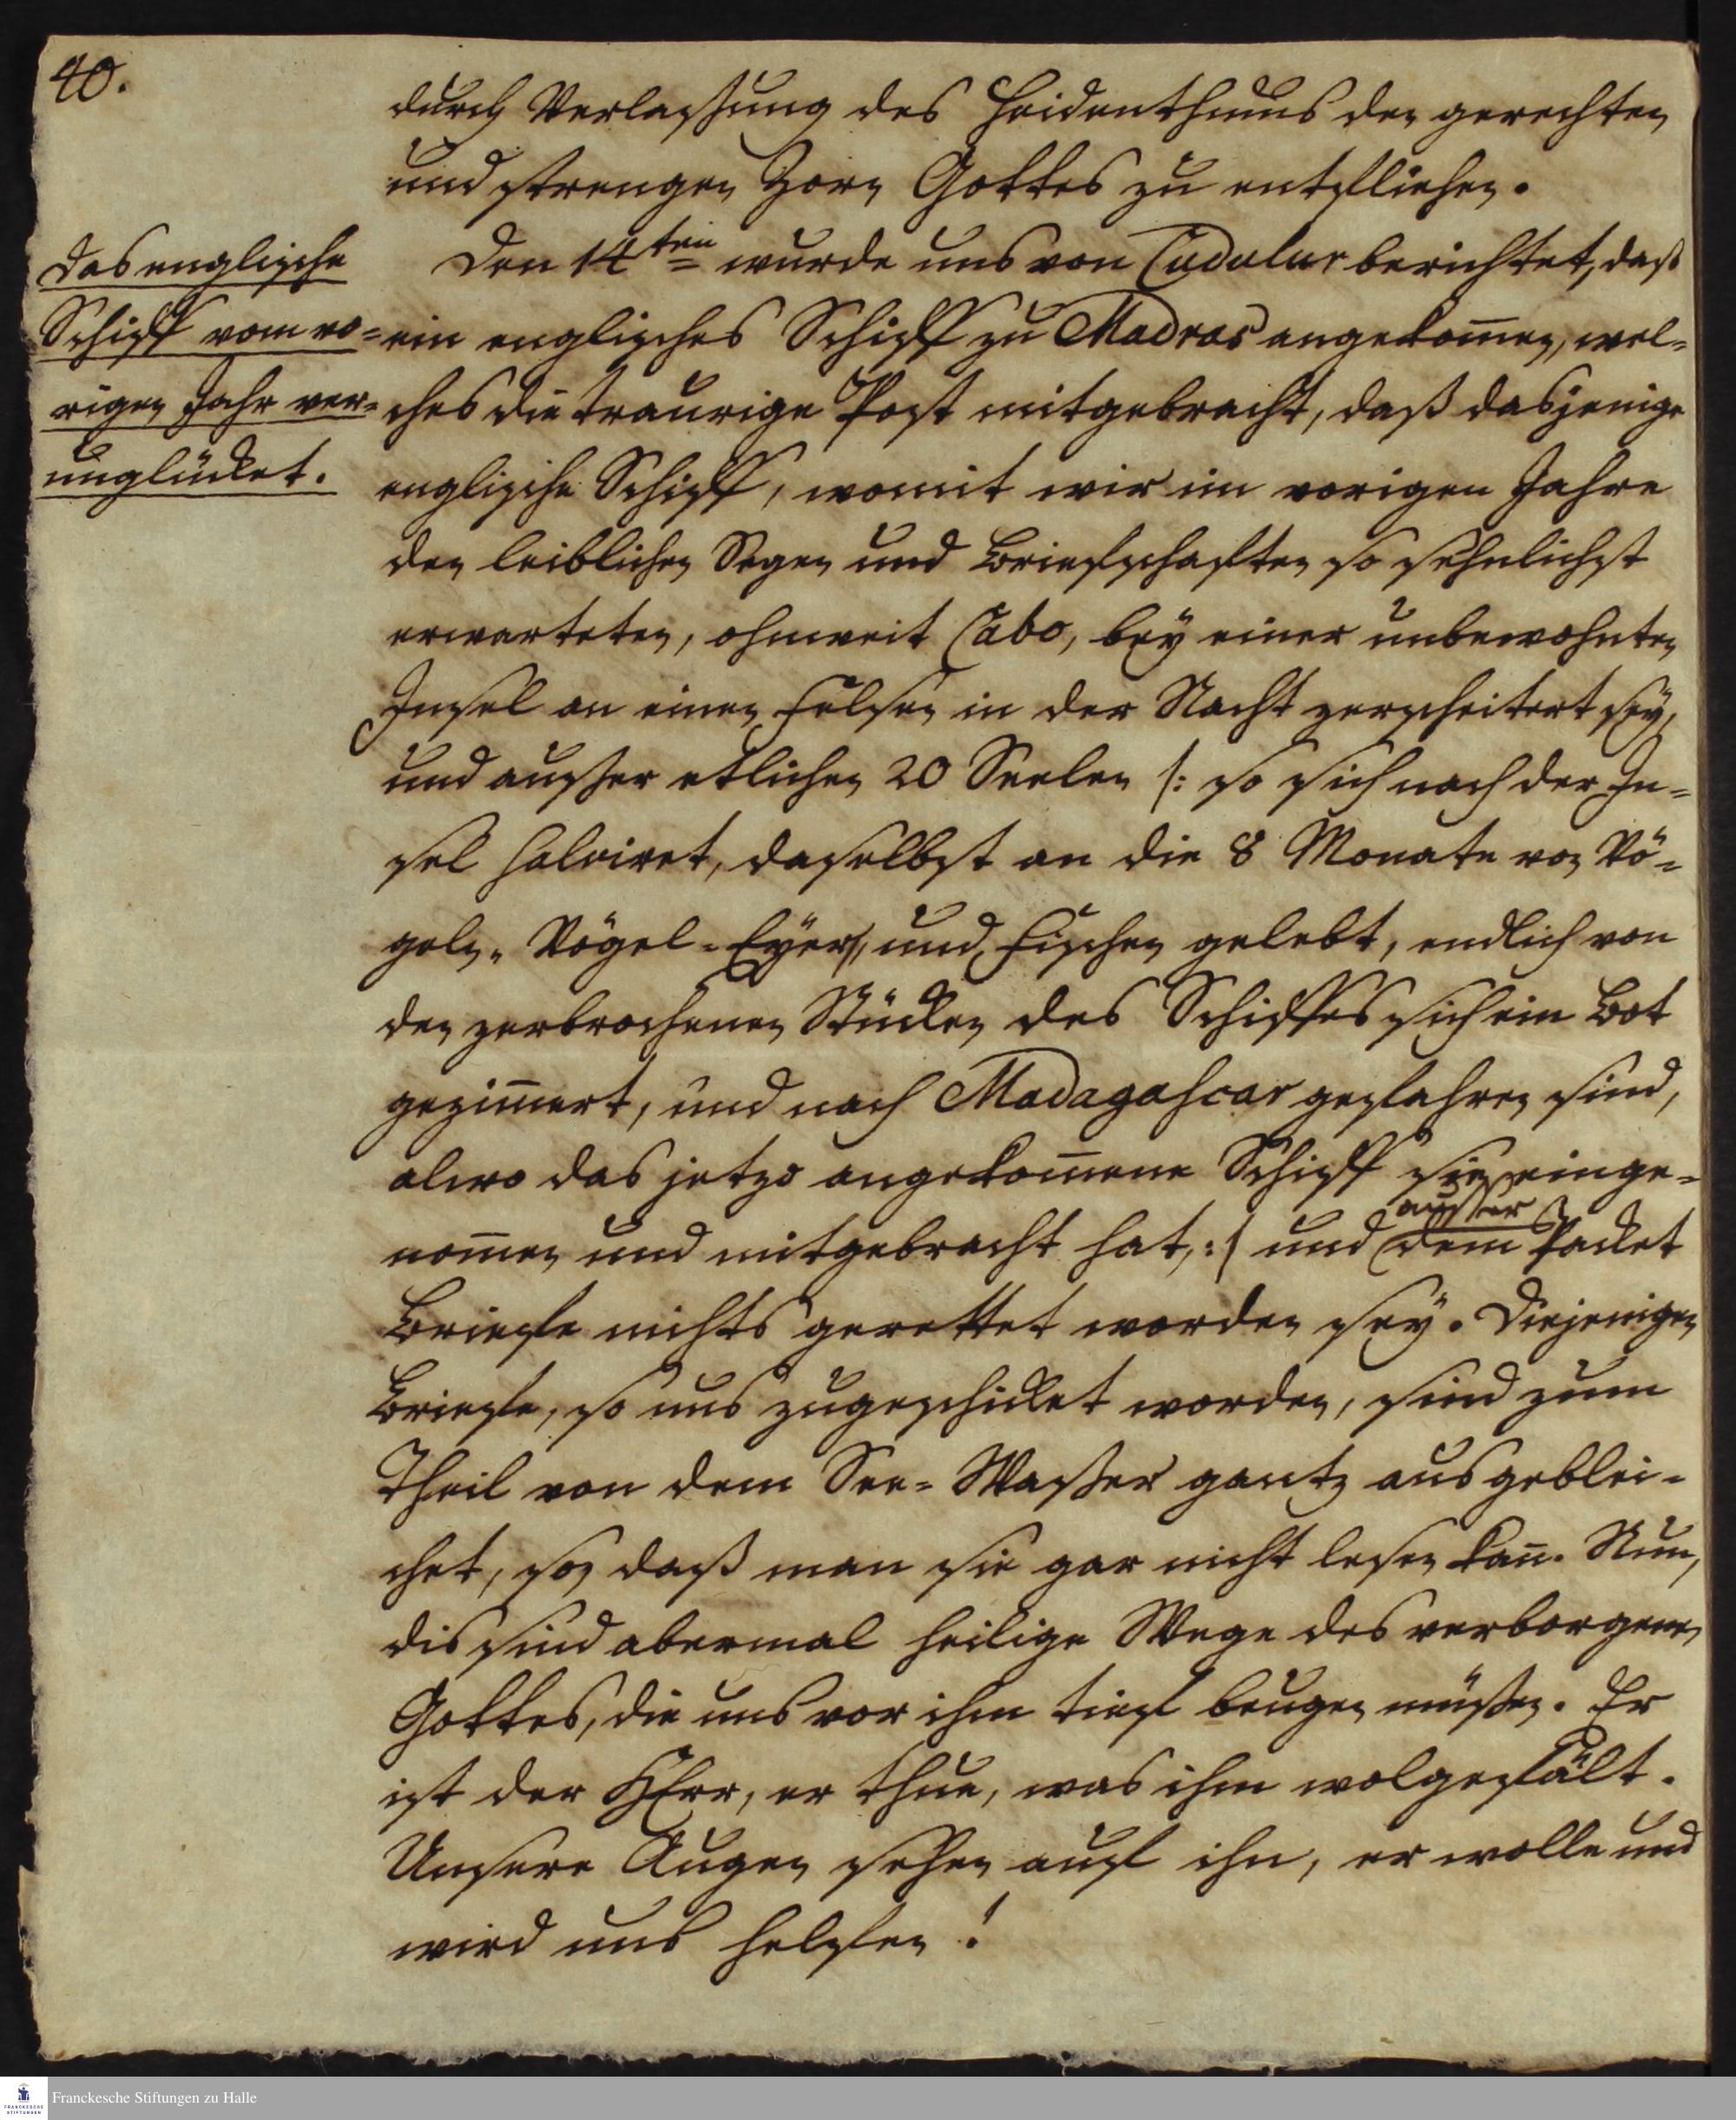 40.
durch Verlaßung des Heidenthums den gerechten
und strengen Zorn Gottes zu entfliehen.
das englische
Schiff vom vo=
rigen Jahr ver=
unglücket.
Den 14ten wurde uns von Cudulur berichtet, daß
ein englisches Schiff zu Madras angekom̄en, wel=
ches die traurige Post mitgebracht, daß dasjenige
englische Schiff, womit wir im vorigen Jahre
den leiblichen Segen und Briefschafften so sehnlichst
erwarteten, ohnweit Cabo, bey einer unbewohnten
Insel an einen Felsen in der Nacht zerscheitert sey,
und außer etlichen 20 Seelen /: so sich nach der In=
sel salviret, daselbst an die 8 Monate von Vö=
geln, Vögel=Eyern, und Fischen gelebt, endlich von
den zerbrochenen Stücken des Schiffes sich ein Bot
gezim̄ert, und nach Madagascar gefahren sind,
alwo das jetzo angekom̄ene Schiff sie einge=
nom̄en und mitgebracht hat, :/ und außer dem Packet
Briefe nichts gerettet worden sey. Diejenigen
Briefe, so uns zugeschicket worden, sind zum
Theil von dem See=Waßer gantz ausgeblei=
chet, so daß man sie gar nicht lesen kan̄. Nun,
dis sind abermal heilige Wege des verborgenen
Gottes, die uns vor ihm tief beugen müßen. Er
ist der HErr, er thue, was ihm wolgefält.
Unsere Augen sehen auf ihn, er wolle und
wird uns helfen!
Franckesche Stiftungen zu Halle
FRANCKESCHE
STIFTUNGEN